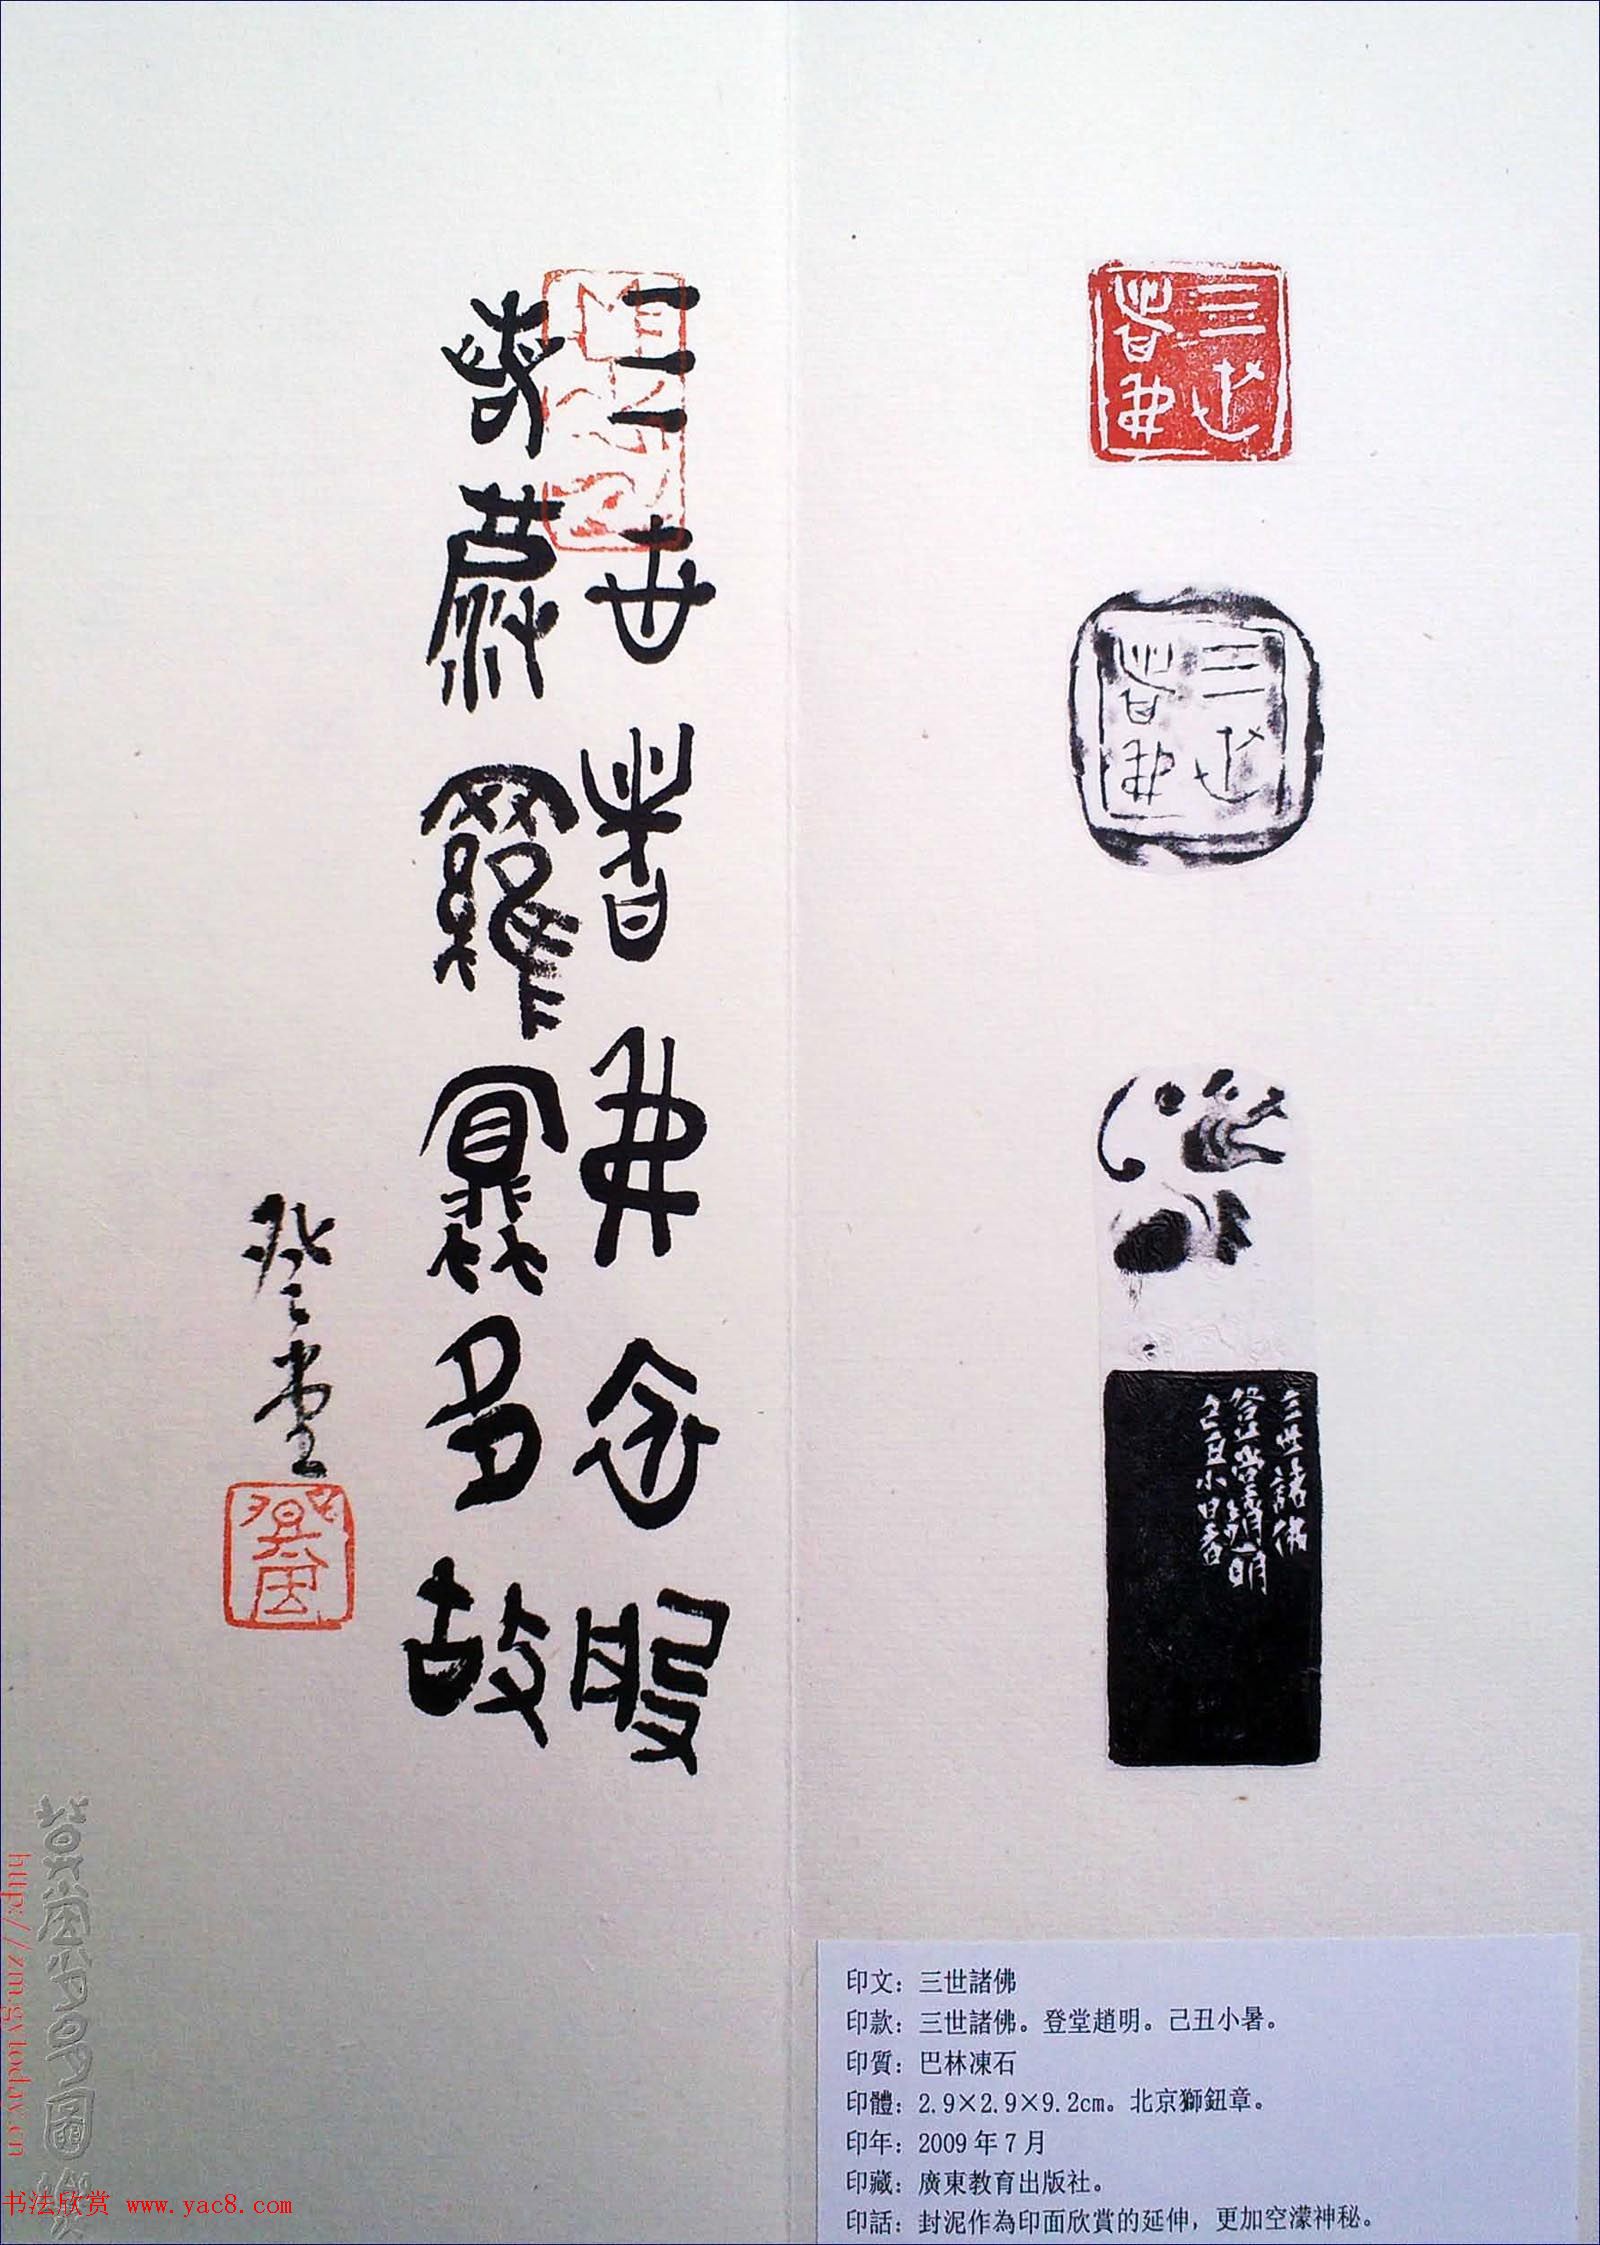 三世諸佛
三世諸佛
三世諸佛
登堂趙明
己丑小暑
三世諸佛依般
若波羅蜜多故
登堂
登堂
印文：三世諸佛
印款：三世諸佛。登堂趙明。己丑小暑。
印質：巴林凍石
印體：2.9×2.9×9.2cm。北京獅鈕章。
印年：2009年7月
印藏：廣東教育出版社。
印話：封泥作為印面欣賞的延伸，更加空濛神秘。
http://zm.gytoday.cn
书法欣赏 www.yac8.com